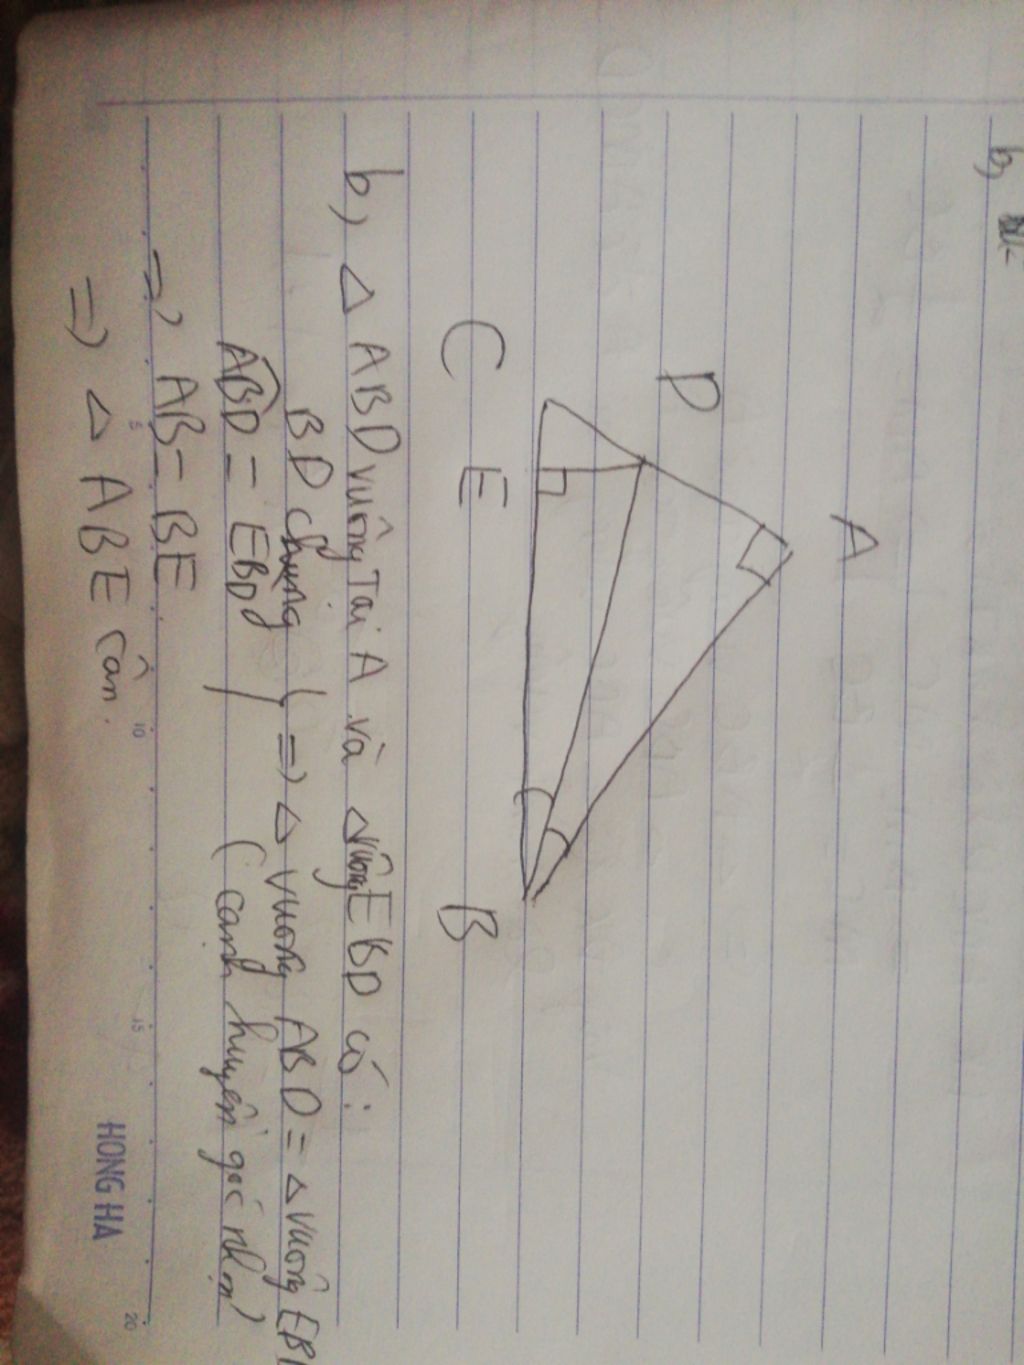 b)
A
D
C
E
B
b) Δ ABD vuông Tại A và Δ vuông EBD có:
BD chung
ABD = EBD
} => Δ vuông ABD = Δ vuông EB
(cạnh huyền góc nhọn)
=> AB = BE
=> Δ ABE cân.
5
10
15
20
HONG HA